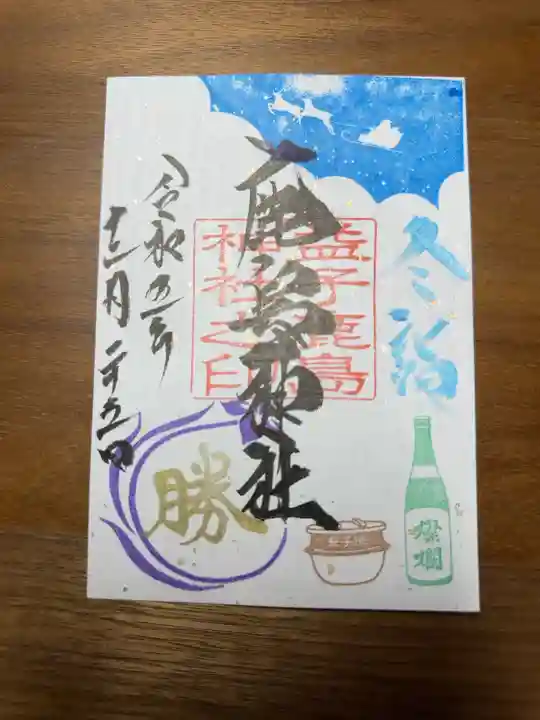 冬詣
鹿島神社
益子鹿島
神社之印
令和五年
十二月二十五日
勝
益子焼
燦爛